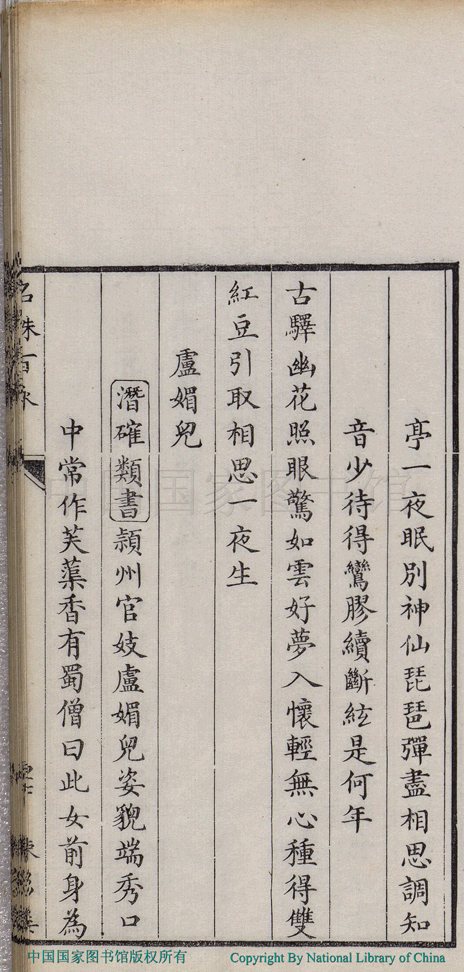 亭一夜眠別神仙琵琶彈盡相思調知
音少待得鸞膠續斷絃是何年
古驛幽花照眼驚如雲好夢入懷輕無心種得雙
紅豆引取相思一夜生
盧媚兒
潛確類書潁州官妓盧媚兒姿貌端秀口
中常作芙蕖香有蜀僧曰此女前身為
中国国家图书馆版权所有
Copyright By National Library of China